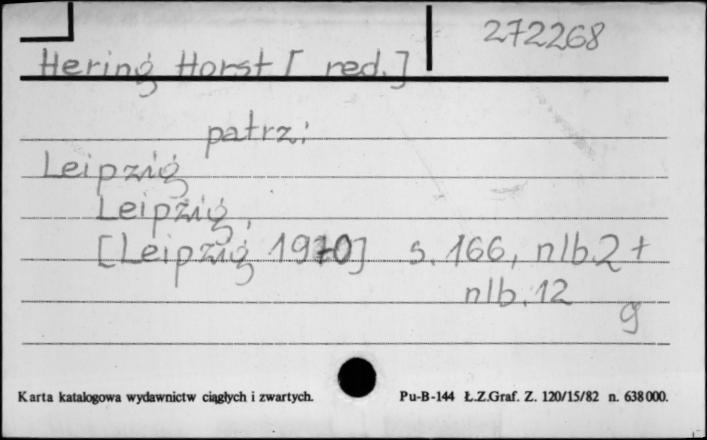 272268
Hering Horst [ red.]
patrz:
Leipzig
Leipzig,
[Leipzig 1970] s. 166, nlb. 2 +
nlb. 12
g
Karta katalogowa wydawnictw ciągłych i zwartych.
Pu-B-144 Ł.Z.Graf. Z. 120/15/82 n. 638000.